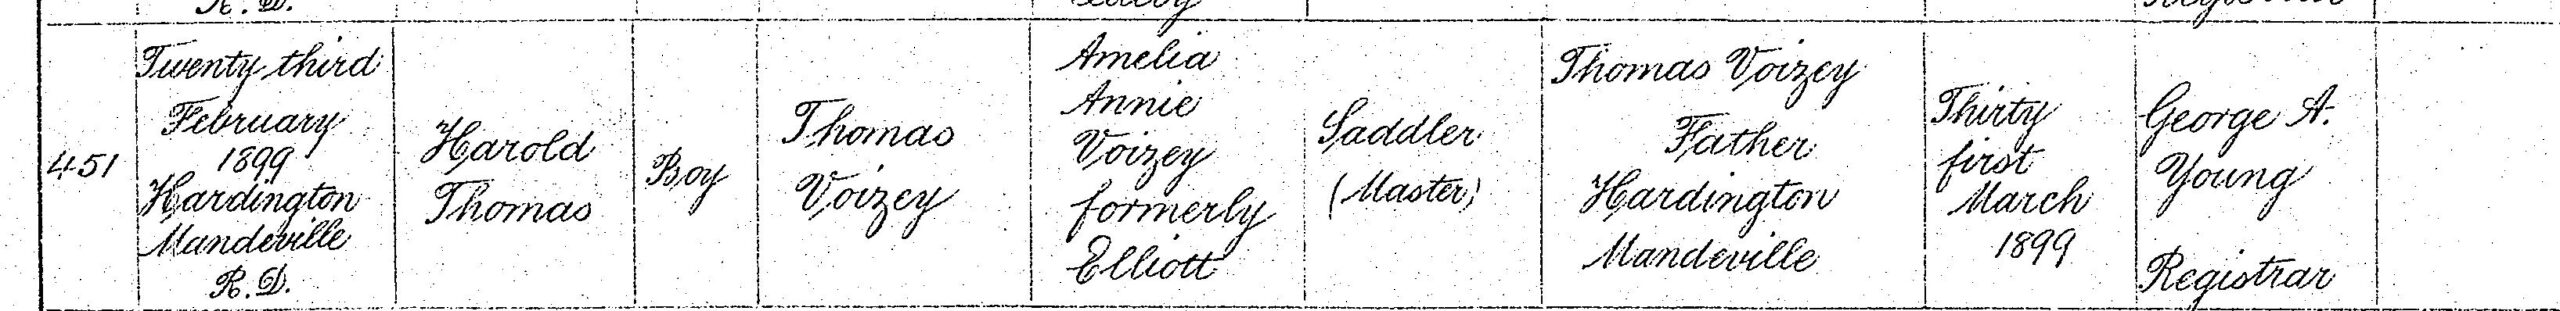 451
Twenty third
February
1899
Hardington
Mandeville
R.D.
Harold
Thomas
Boy
Thomas
Voizey
Amelia
Annie
Voizey
formerly
Elliott
Saddler
(Master)
Thomas Voizey
Father
Hardington
Mandeville
Thirty
first
March
1899
George A.
Young
Registrar